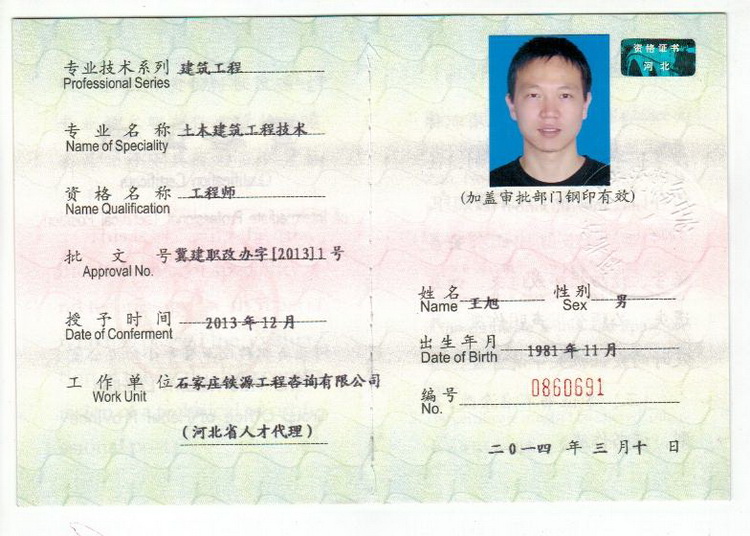 专业技术系列 建筑工程
Professional Series
专业名称 土木建筑工程技术
Name of Speciality
资格名称 工程师
Name Qualification
批文号 冀建职改办字[2013]1号
Approval No.
授予时间 2013年12月
Date of Conferment
工作单位 石家庄铁源工程咨询有限公司
Work Unit
(河北省人才代理)
资格证书
河北
(加盖审批部门钢印有效)
姓名 王旭 性别 男
Name Sex
出生年月 1981年11月
Date of Birth
编号 0860691
No.
二〇一四 年 三 月 十 日